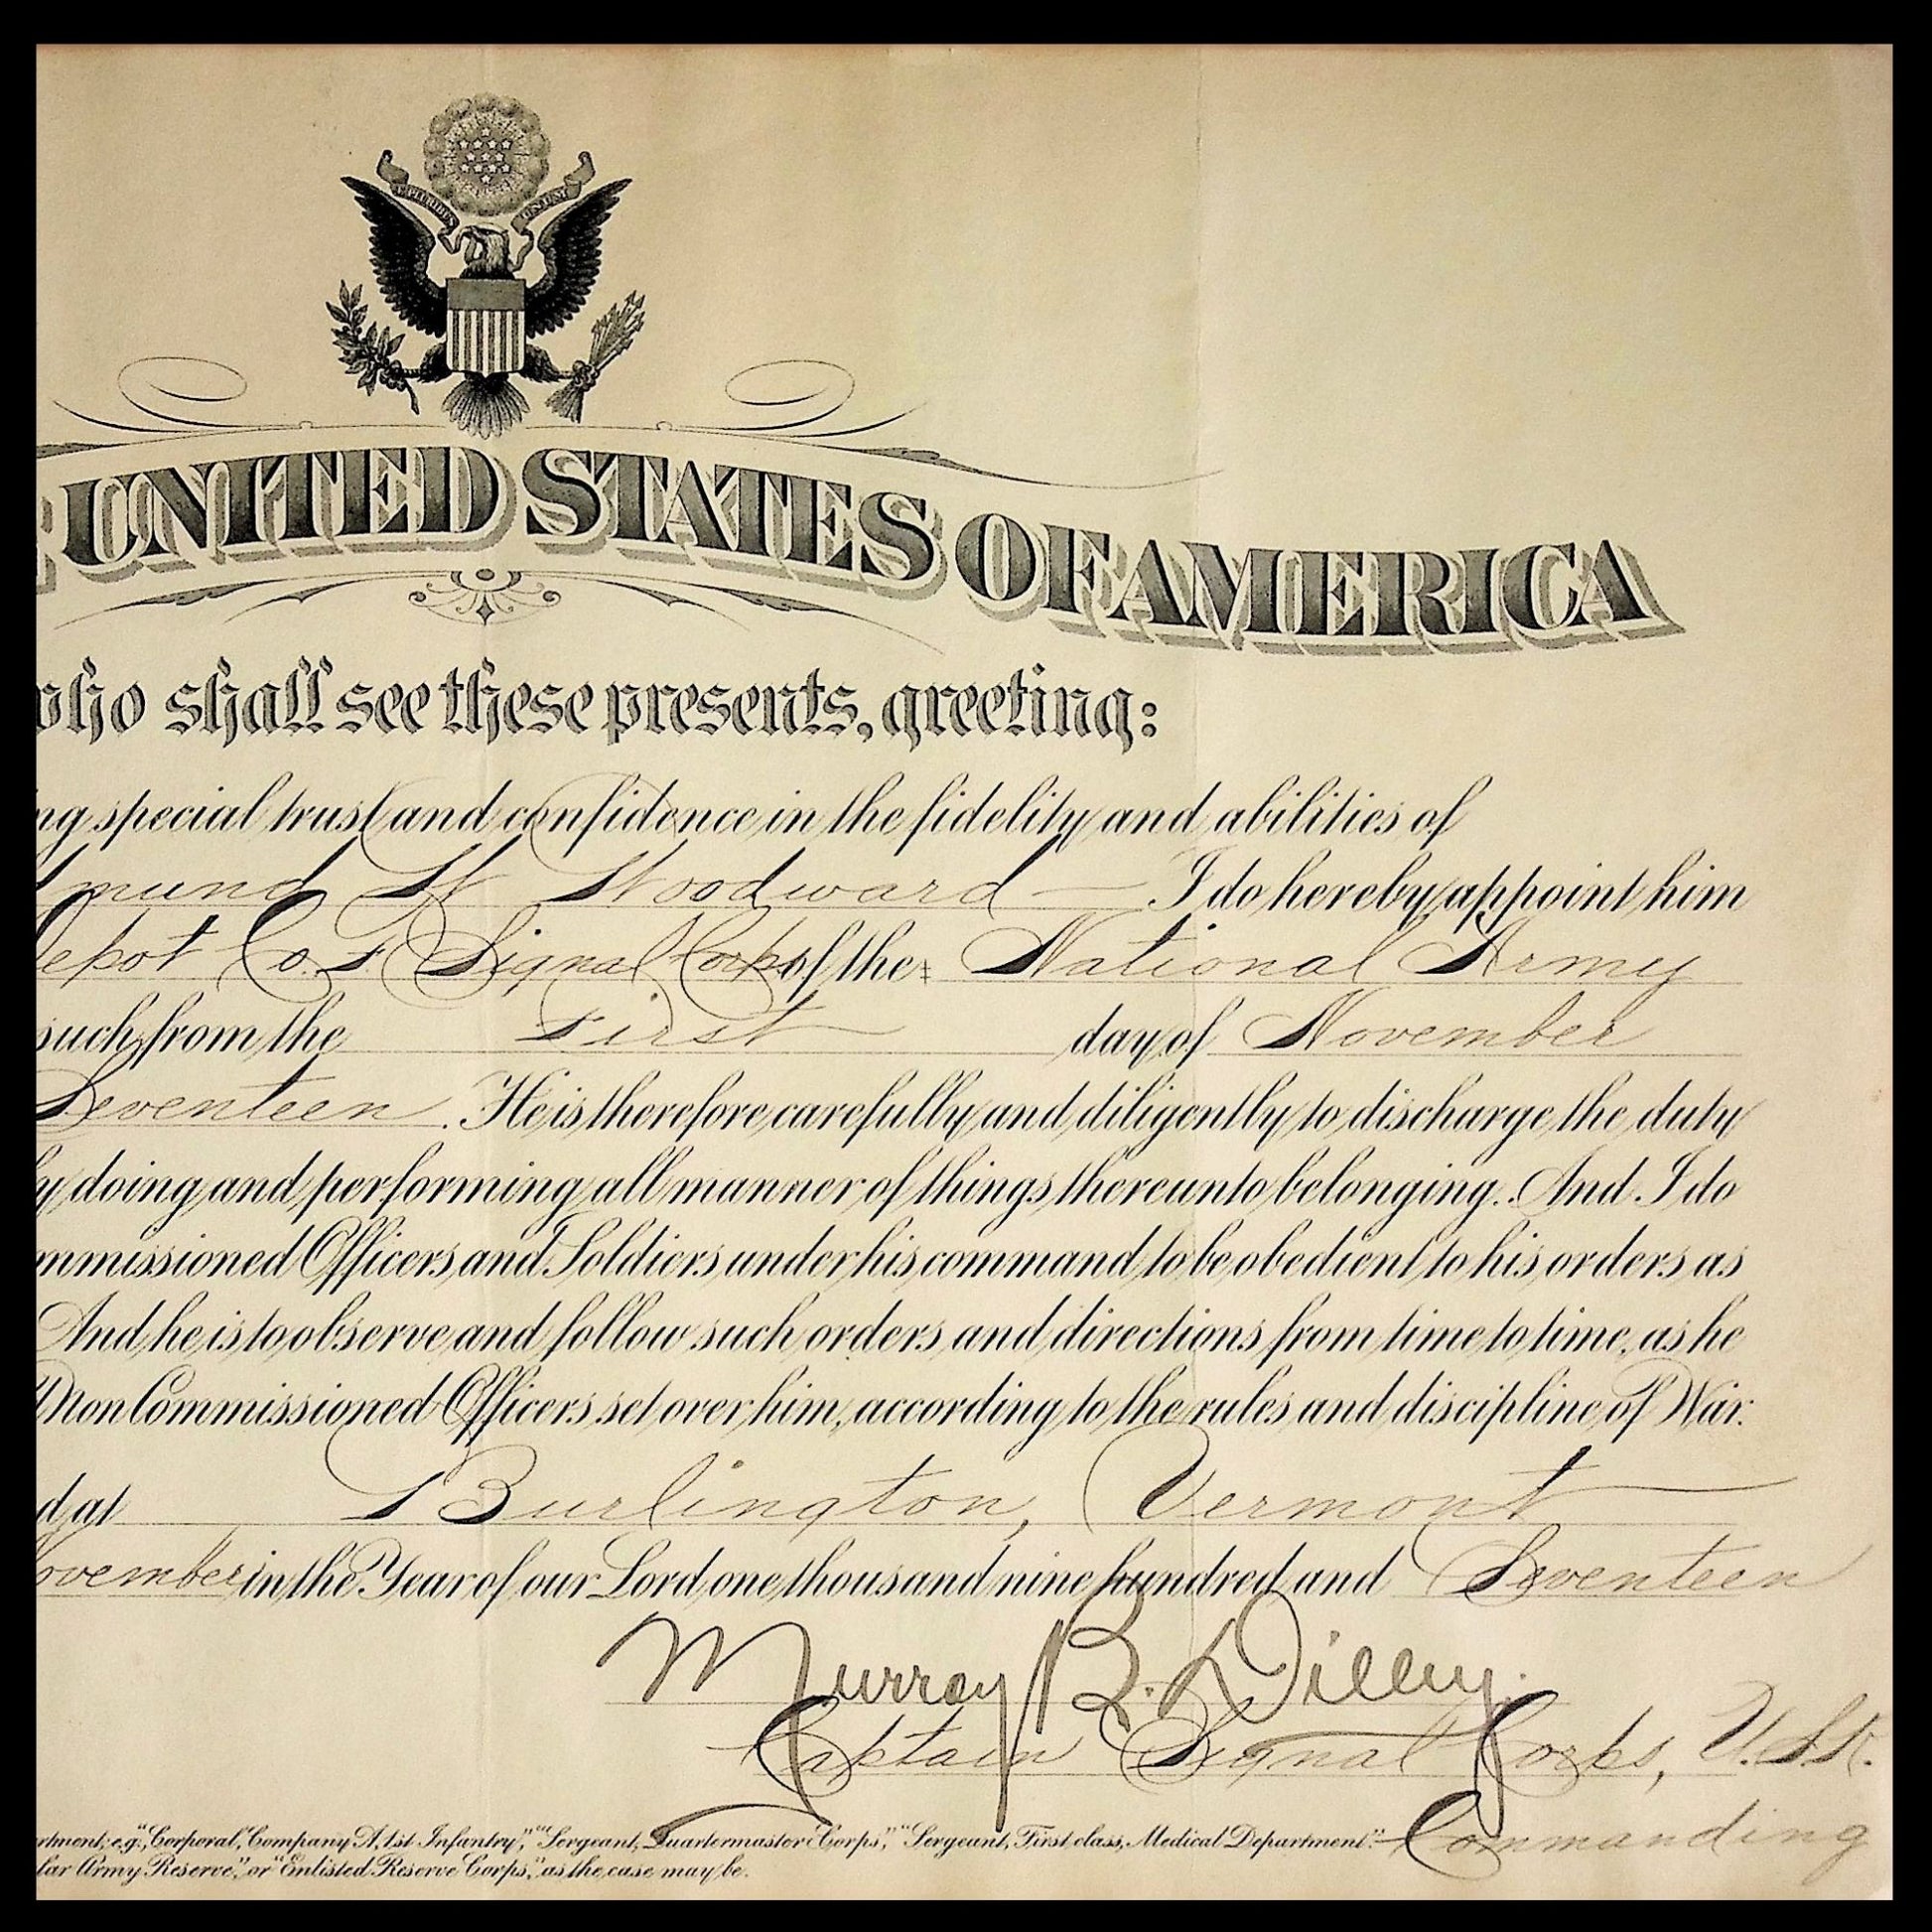 E PLURIBUS UNUM
UNITED STATES OF AMERICA
who shall see these presents, greeting:
ng special trust and confidence in the fidelity and abilities of
mund H Woodward I do hereby appoint him
epot Co. F Signal Corps of the ‡ National Army
such from the First day of November
Seventeen. He is therefore carefully and diligently to discharge the duty
y doing and performing all manner of things thereunto belonging. And I do
mmissioned Officers and Soldiers under his command to be obedient to his orders as
And he is to observe and follow such orders and directions from time to time, as he
Non Commissioned Officers set over him, according to the rules and discipline of War.
d at Burlington, Vermont
ovember in the Year of our Lord one thousand nine hundred and Seventeen
Murray B. Dilley.
Captain Signal Corps, U.S.R.
rtment; e.g., "Corporal, Company A, 1st Infantry," "Sergeant, Quartermaster Corps," "Sergeant, First class, Medical Department." Commanding
lar Army Reserve," or "Enlisted Reserve Corps," as the case may be.